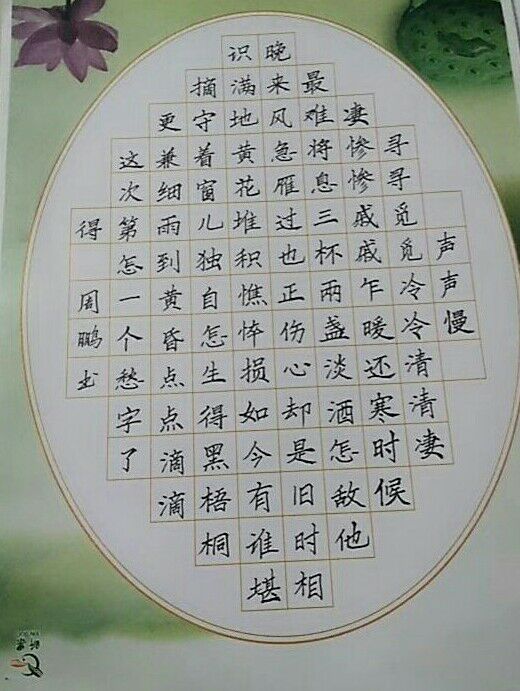 声声慢
寻寻觅觅冷冷清清凄
凄惨惨戚戚乍暖还寒时候
最难将息三杯两盏淡洒怎敌他
晚来风急雁过也正伤心却是旧时相
识满地黄花堆积憔悴损如今有谁堪
摘守着窗儿独自怎生得黑梧桐
更兼细雨到黄昏点点滴滴
这次第怎一个愁字了
得 周鹏书